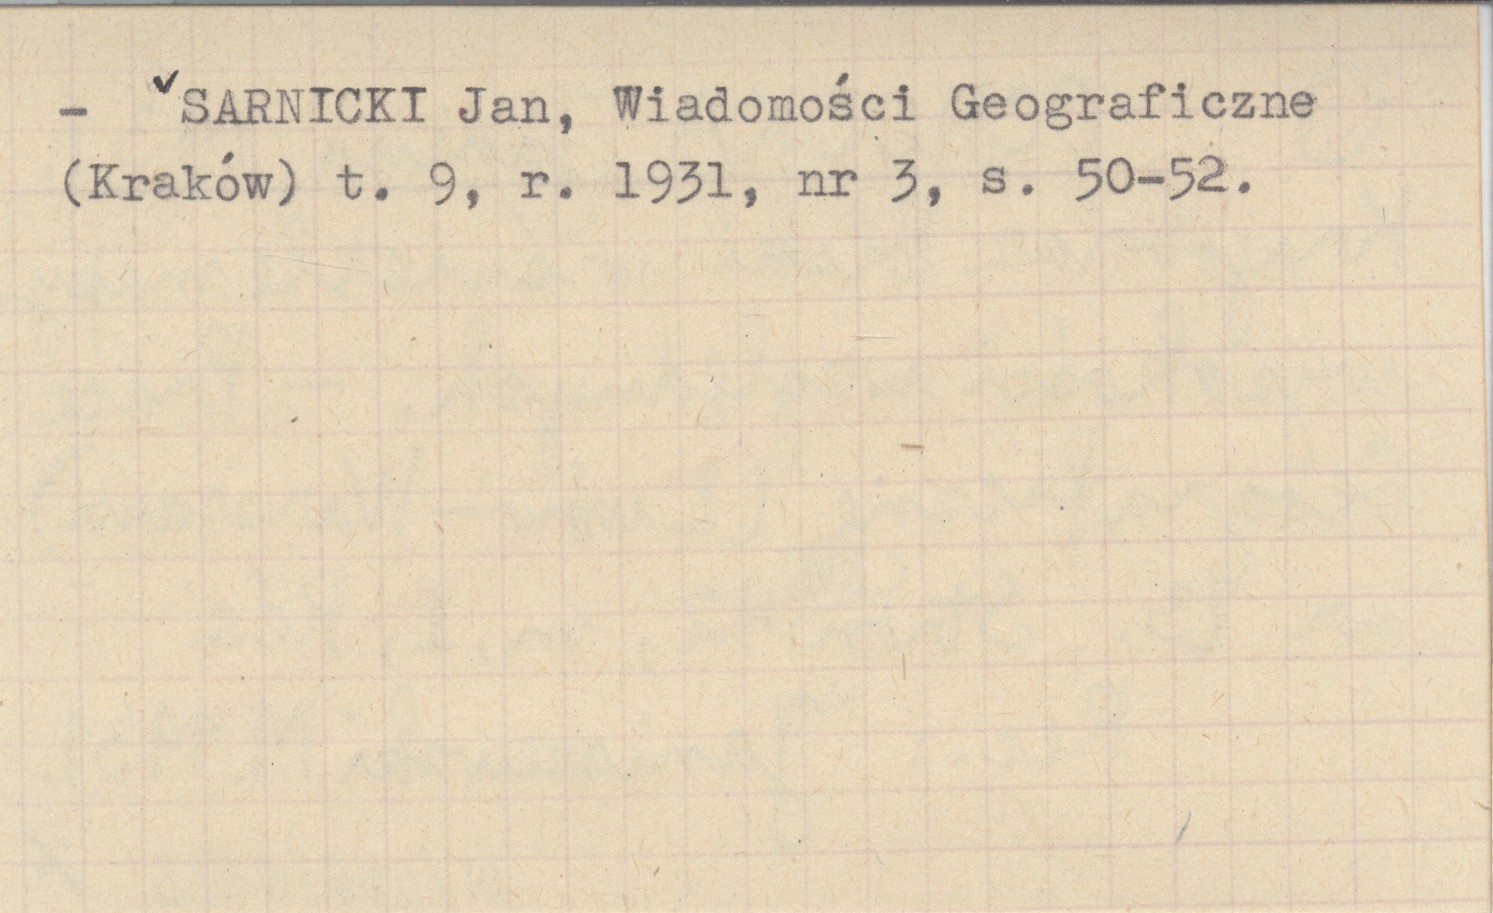 - ✓SARNICKI Jan, Wiadomości Geograficzne
(Kraków) t. 9, r. 1931, nr 3, s. 50-52.